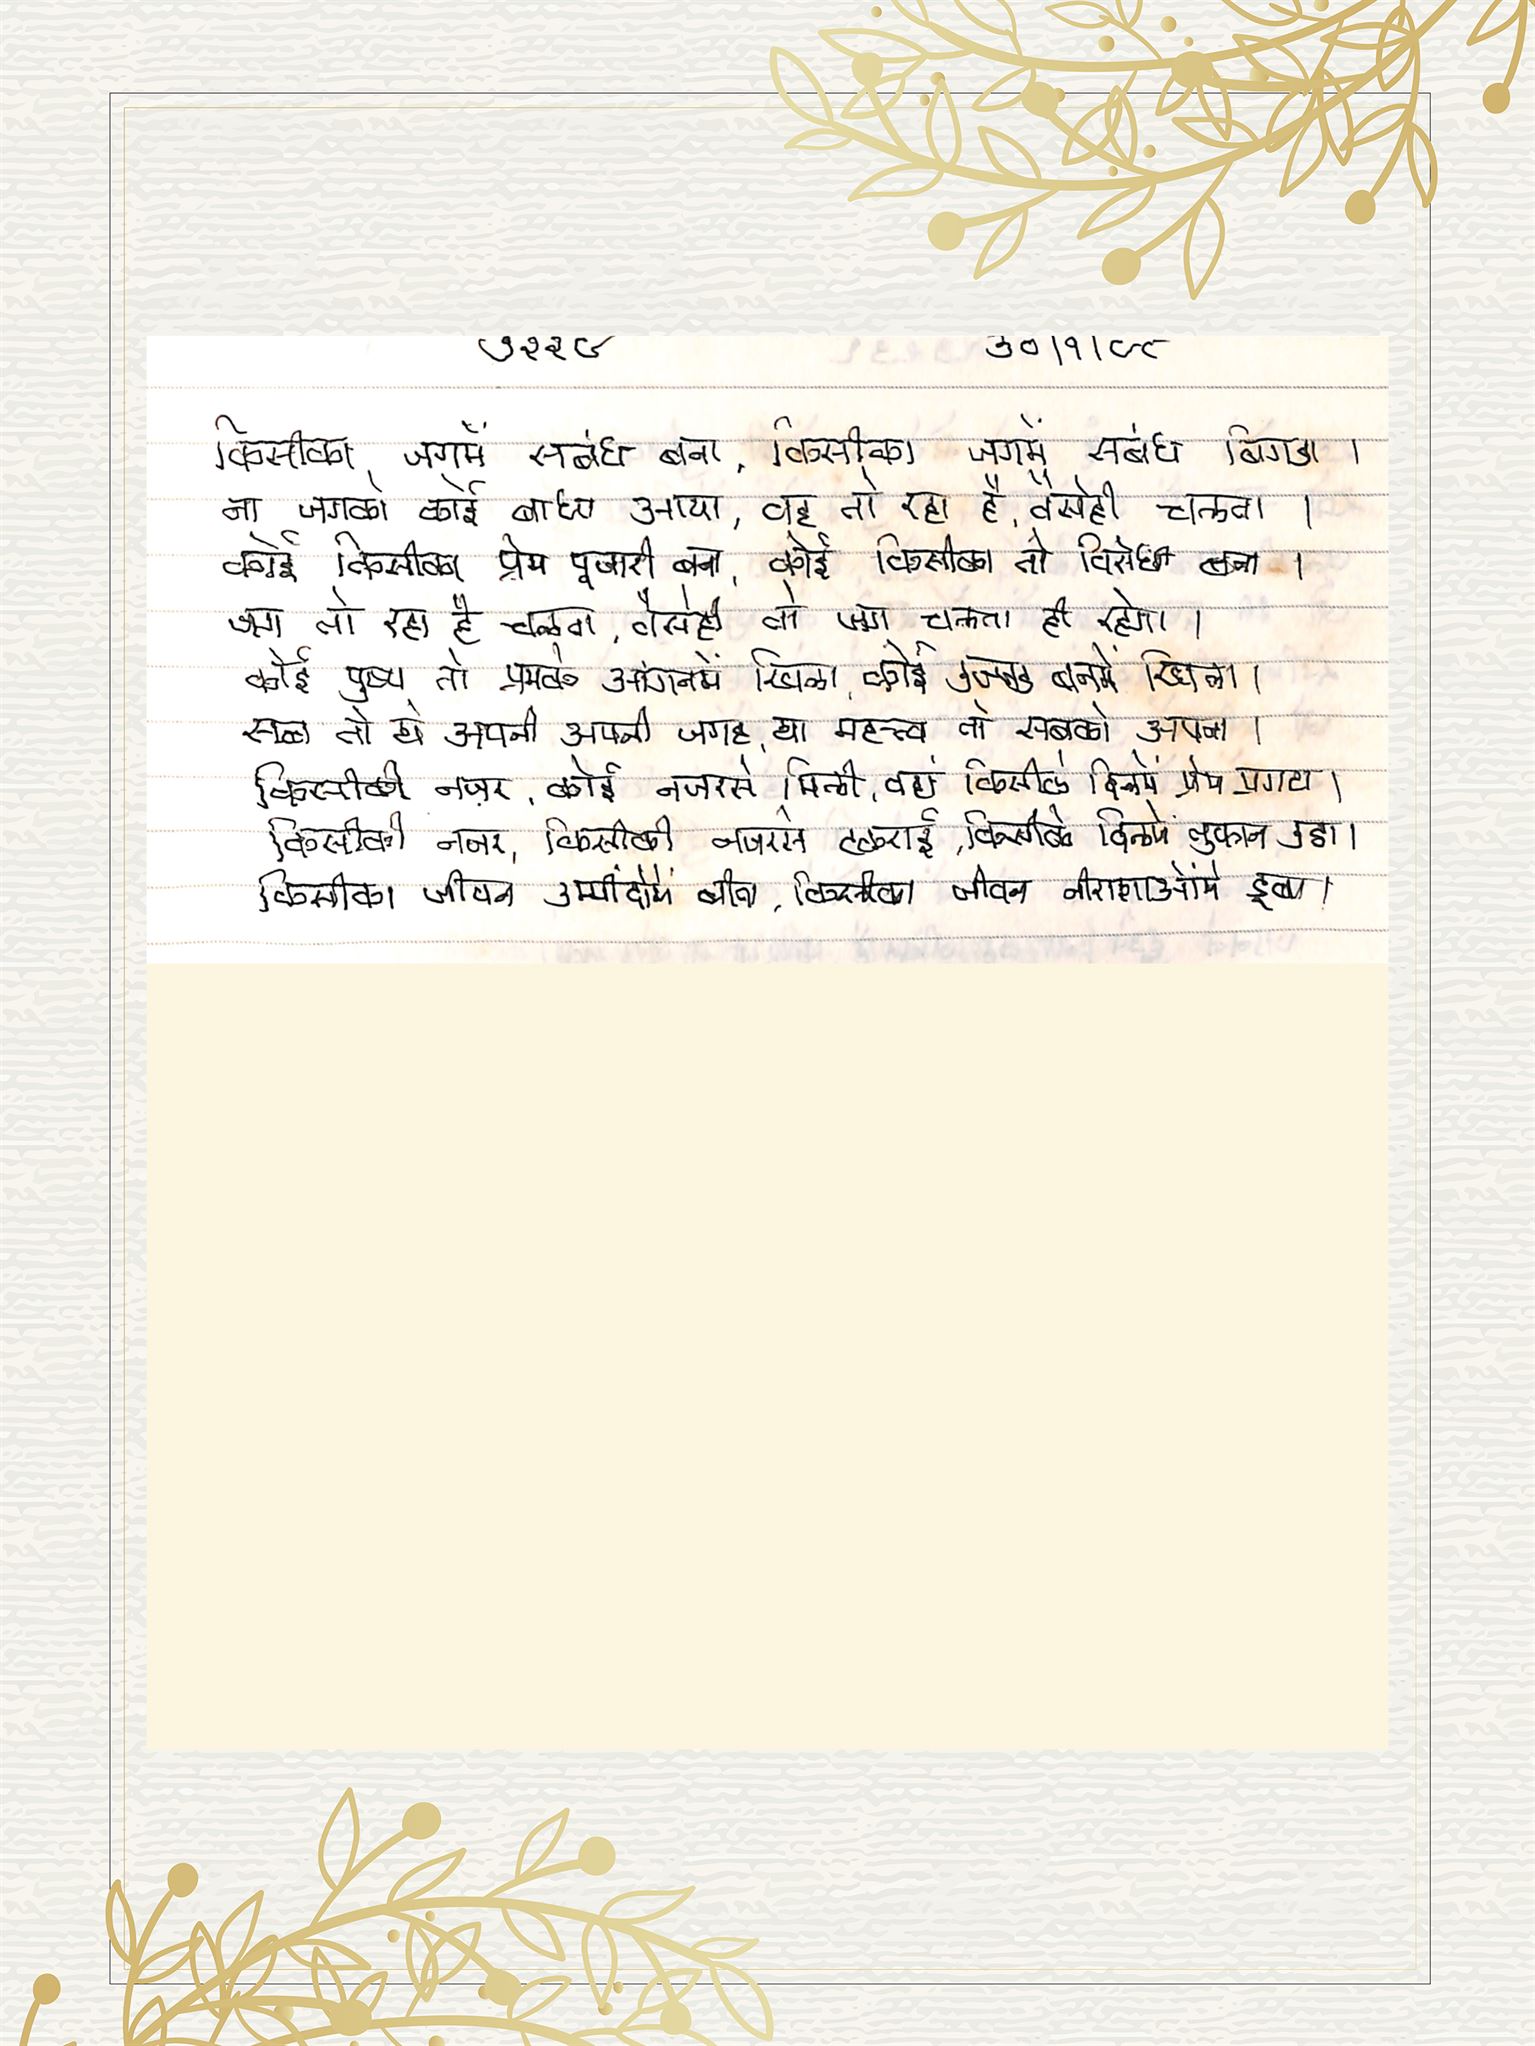 ७२२९ ३०/१/९८
किसीका, जगमें सबंध बना, किसीका जगमें सबंध बिगडा ।
ना जगको कोई बाधा आया, वह तो रहा है, वैसेही चलता ।
कोई किसीका प्रेम पूजारी बना, कोई किसीका तो विरोधी बना ।
जग तो रहा है चलता, वैसेही तो जग चलता ही रहेगा ।
कोई पुष्प तो प्रेमके आंगनमें खिला, कोई उज्जड बनमें खिला ।
तो थे अपनी अपनी जगह, था महत्त्व तो सबको अपना ।
किसीकी नज़र, कोई नजरसे मिली, वहां किसीके दिलमें प्रेम प्रगटा ।
किसीकी नजर, किसीकी नजरसे टकराई, किसीके दिलमें तुफान उडा ।
किसीका जीवन उम्मींदोमें बीता, किसीका जीवन नीराशाओंमे डूबा ।